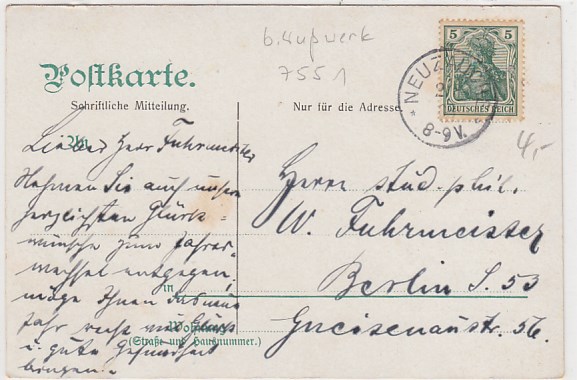 b. Aufwerk
7551
Postkarte.
5 5
DEUTSCHES REICH
* NEU
8-9V.
4,-
Schriftliche Mitteilung.
Nur für die Adresse.
An
Lieber Herr Fuhrmeister
Nehmen Sie auch unsere
herzlichsten Glück-
wünsche zum Jahres-
wechsel entgegen,
möge Ihnen das neue
Jahr recht viel Glück
u. gute Gesundheit
bringen.
in
Wohnung
(Straße und Hausnummer.)
Herrn stud. phil.
W. Fuhrmeister
Berlin S. 53
Gneisenaustr. 56.